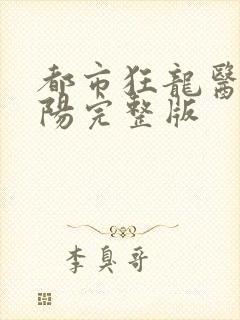 都市狂龍醫
陽完整版
李臭哥